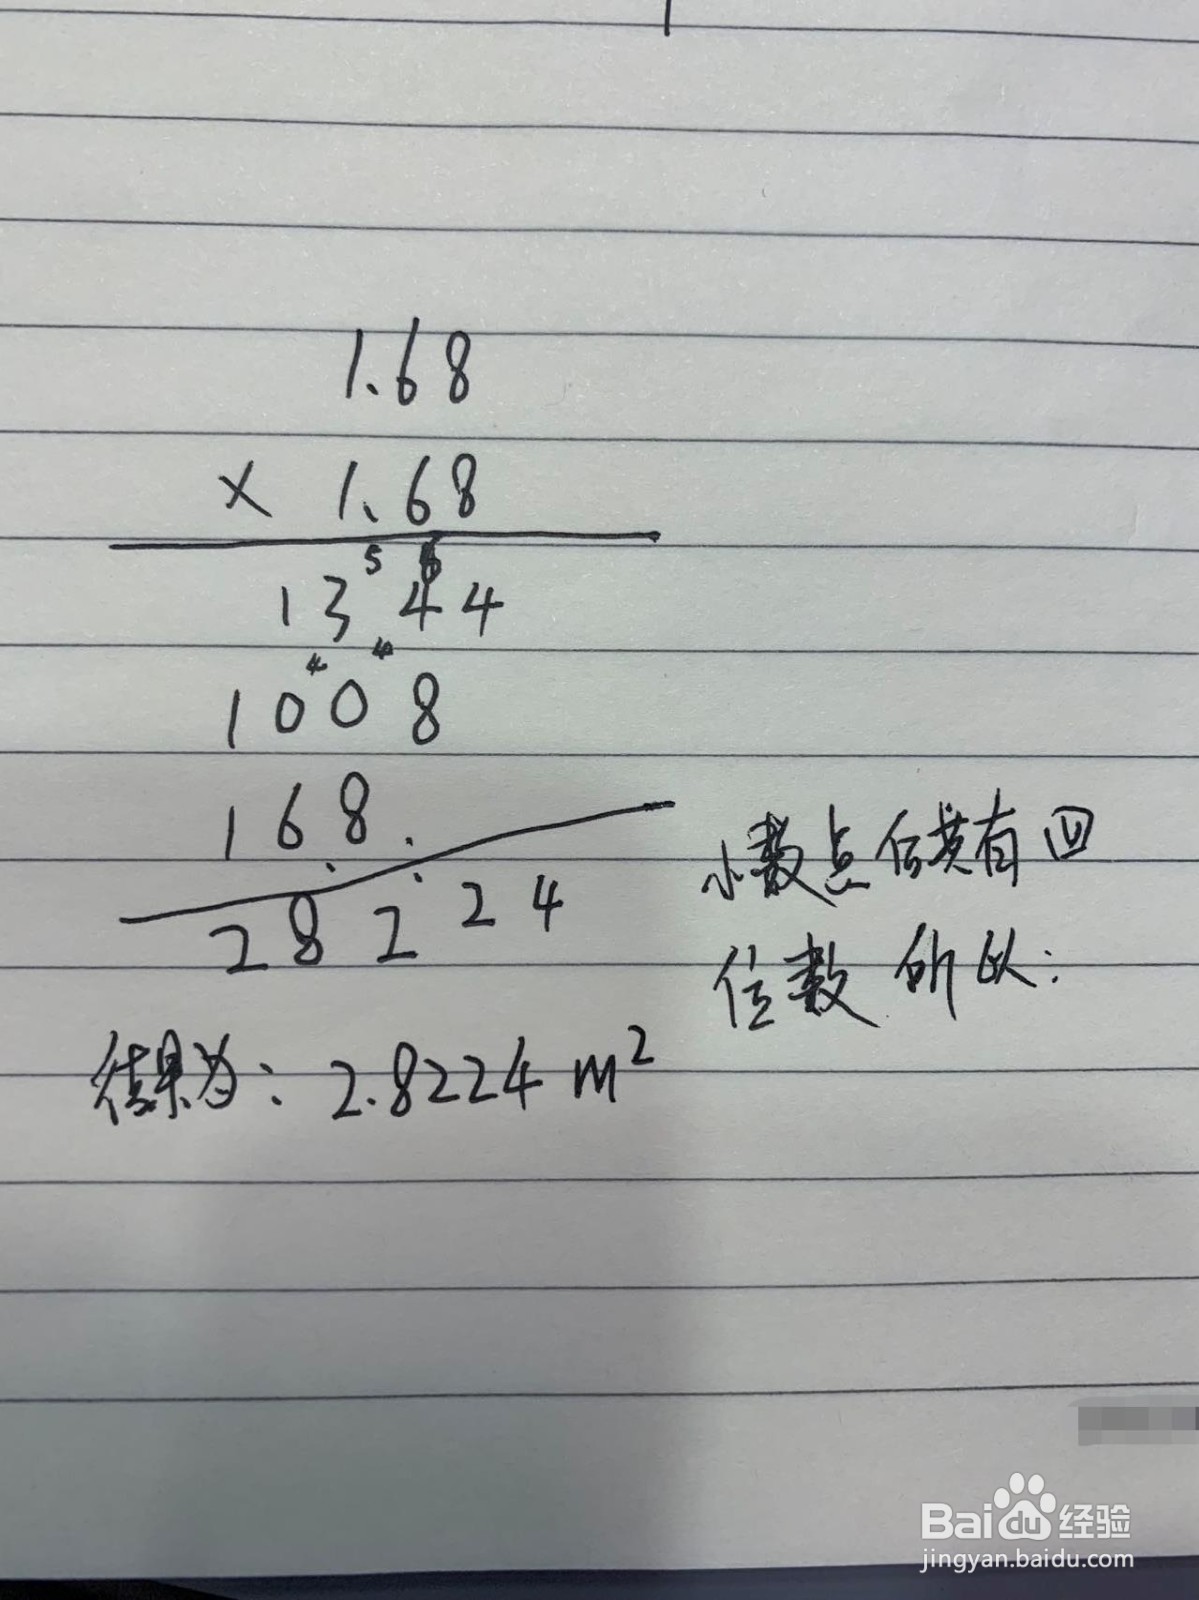 1.68
× 1.68
5 6
1344
4 4
1008
168
28224
小数点后共有四
位数 所以:
结果为: 2.8224 m²
Baidu经验
jingyan.baidu.com